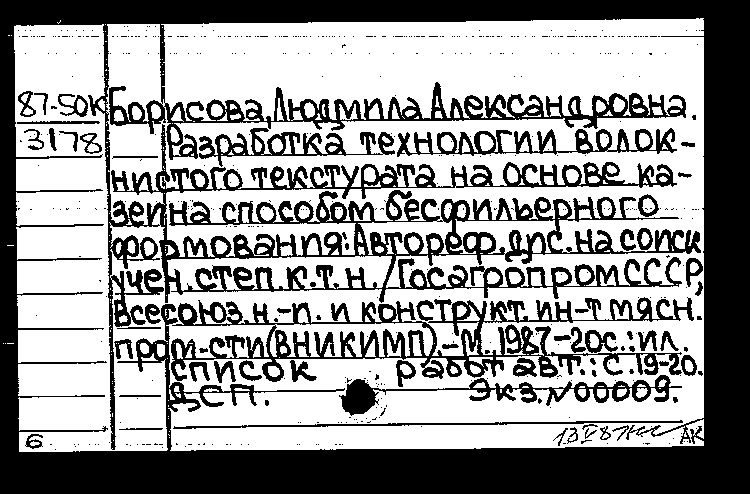 87-50К Борисова, Людмила Александровна.
3178 Разработка технологии волок-
нистого текстурата на основе ка-
зеина способом бесфильерного
формования: Автореф. дис. на соиск
учен. степ. к.т.н. / Госагропром СССР,
Всесоюз. н.-п. и конструкт. ин-т мясн.
пром-сти (ВНИКИМП). - М. 1987 - 20с.: ил.
список работ авт.: с. 19-20.
ДСП. Экз. N 00009.
6 АК